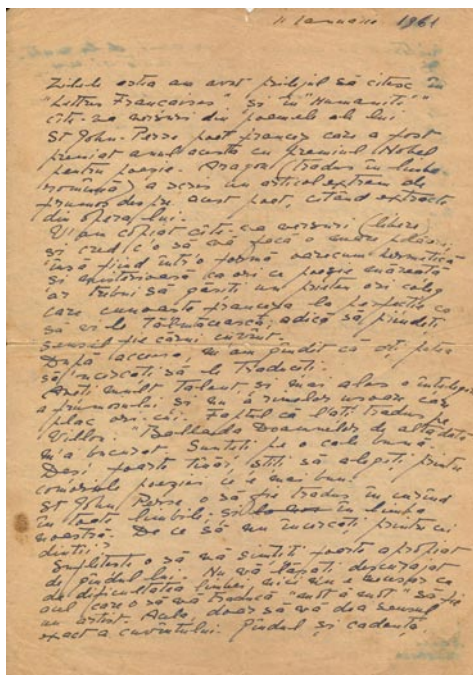 11 Ianuarie 1961
Zilele astea am avut prilejul să citesc în
"Lettres Françaises" și în "Humanité"
cîte-va versuri din poemele ale lui
St John-Perse poet francez care a fost
premiat anul acesta cu premiul Nobel
pentru poezie. Aragon (tradus în limba
română) a scris un articol extrem de
frumos despre acest poet, citând extracte
din opera lui.
V'am copiat cîte-va versuri (libere)
și cred c'o să vă facă o mare plăcere,
însă fiind într'o formă oarecum hermetică
și misterioasă ca ori ce poezie mare
ar trebui să găsiți un prieten ori coleg
care cunoaște franceza la perfecție ca
să vi le tălmăcească, adică să prindeți
sensul fie cărui cuvînt.
După aceea, m'am gîndit că ați putea
să încercați să le traduceți.
Aveți mult talent și mai ales o înțelegere
a frumosului și nu a rimelor ușoare care
plac ori cui. Faptul că l'ați tradus pe
Villon "Ballada Doamnelor de altădată"
m'a bucurat. Sunteți pe o cale bună.
Deși foarte tînăr, știți să alegeți printre
comorile poeziei ce e mai bun.
St John Perse o să fie tradus în curînd
în toate limbile, și în limba
noastră. De ce să nu încercați printre cei
dintîi?
Sufletește o să vă simțiți foarte apropiat
de gîndul lui. Nu vă lăsați descurajat
de dificultatea limbei, nici nu e nevoie ca
cel care o să vă traducă "mot à mot" să fie
un artist. Acela, doar să vă dea sensul
exact a cuvîntului. Gîndul și cadența,